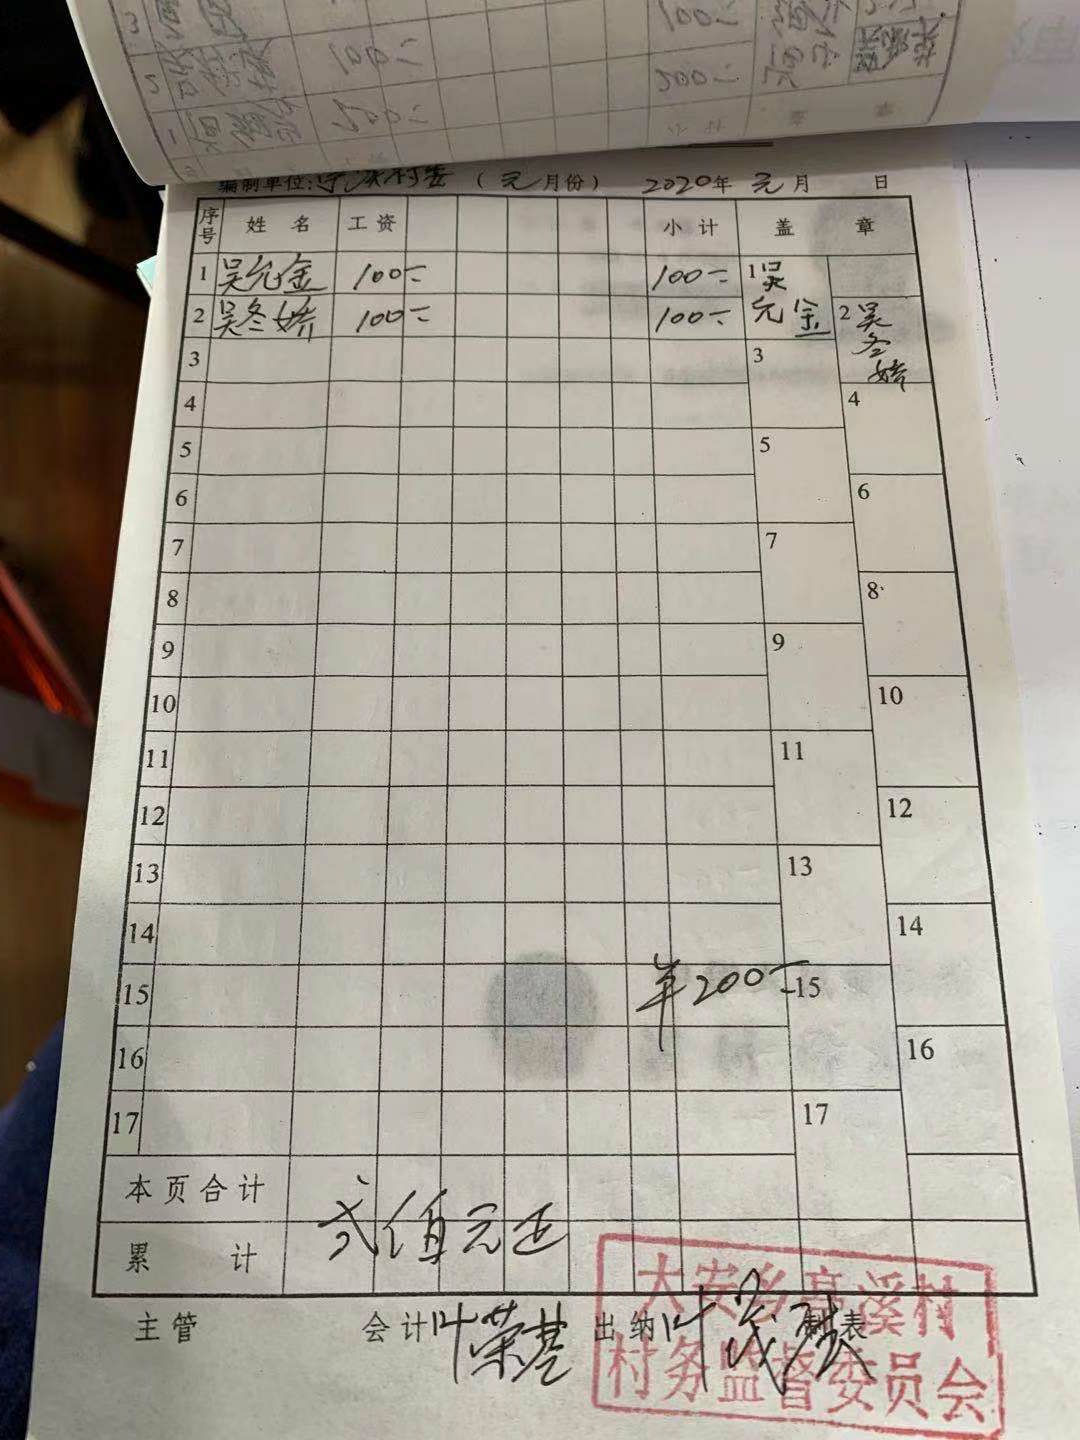 编制单位:亭溪村委 （元月份） 2020年 元月 日
序号 姓名 工资 小计 盖章
1 吴允金 100 100 1 吴允金
2 吴冬娇 100 100 2 吴冬娇
3 3
4 4
5 5
6 6
7 7
8 8
9 9
10 10
11 11
12 12
13 13
14 14
15 ¥200 15
16 16
17 17
本页合计
累计 弍佰元正
主管 会计 叶荣基 出纳 叶 制表
大安乡亭溪村
村务监督委员会